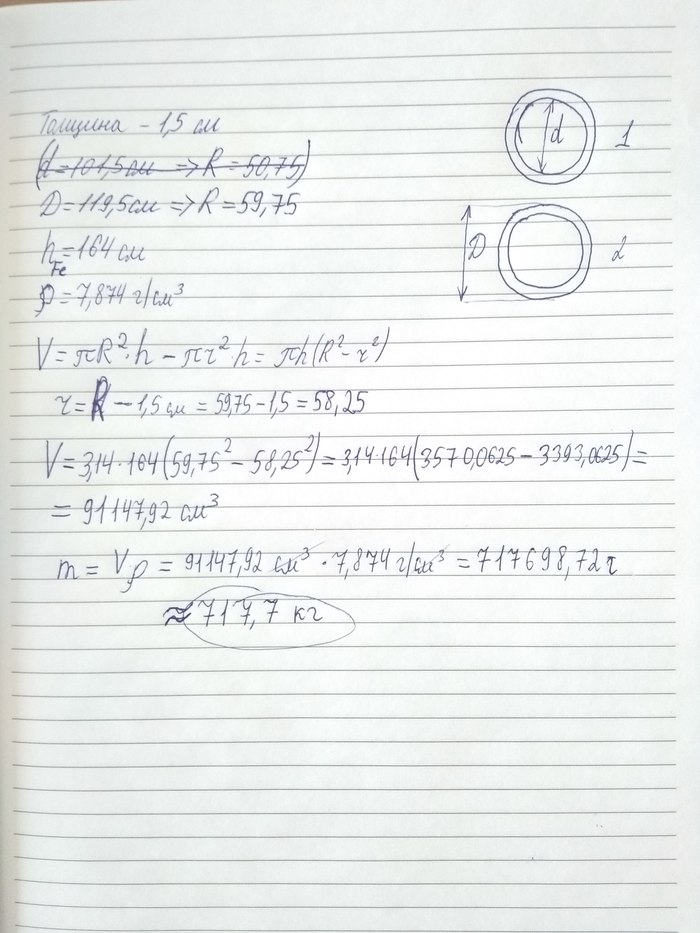 Толщина – 1,5 см
(d=101,5см => R=50,75)
D=119,5см => R=59,75
h=164 см
ρFe=7,874 г/см³
V=πR²·h – πr²·h= πh(R²–r²)
r=R – 1,5 см = 59,75–1,5=58,25
V=3,14·164(59,75²–58,25²)=3,14·164(3570,0625–3393,0625)=
= 91147,92 см³
m = Vρ = 91147,92 см³ · 7,874 г/см³ = 717698,72 г
≈717,7 кг
d 1
D 2